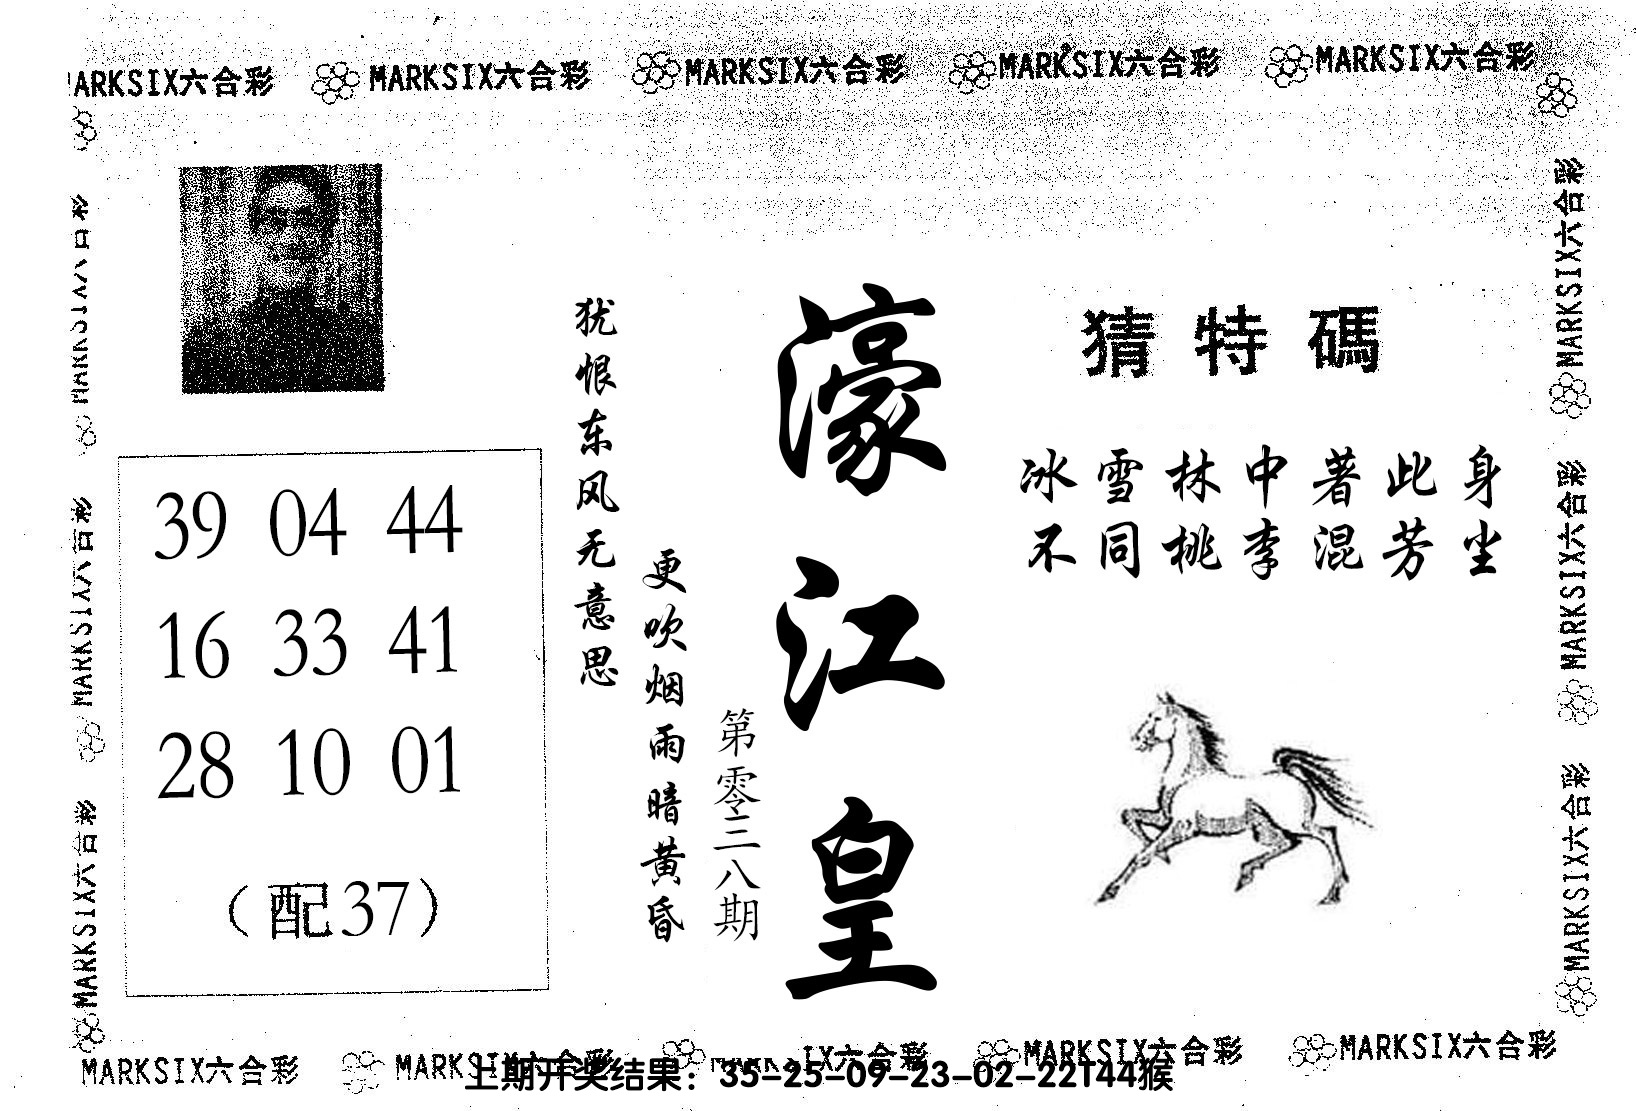 MARKSIX六合彩 MARKSIX六合彩 MARKSIX六合彩 MARKSIX六合彩 MARKSIX六合彩
猜特碼
冰雪林中著此身
不同桃李混芳尘
濠江皇
第零三八期
犹恨东风无意思
更吹烟雨暗黄昏
39 04 44
16 33 41
28 10 01
（配37）
MARKSIX六合彩
MARKSIX六合彩
MARKSIX六合彩
MARKSIX六合彩
MARKSIX六合彩
MARKSIX六合彩
MARKSIX六合彩 MARKSIX六合彩 MARKSIX六合彩 MARKSIX六合彩
上期开奖结果：35-25-09-23-02-22T44猴